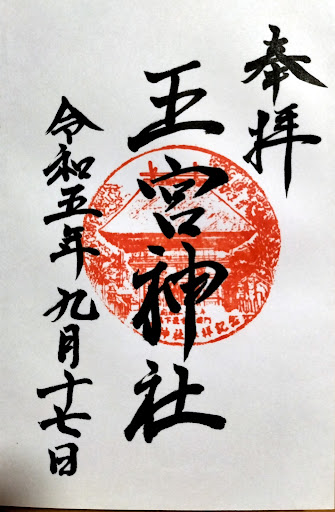 奉拝
王宮神社
令和五年九月十七日